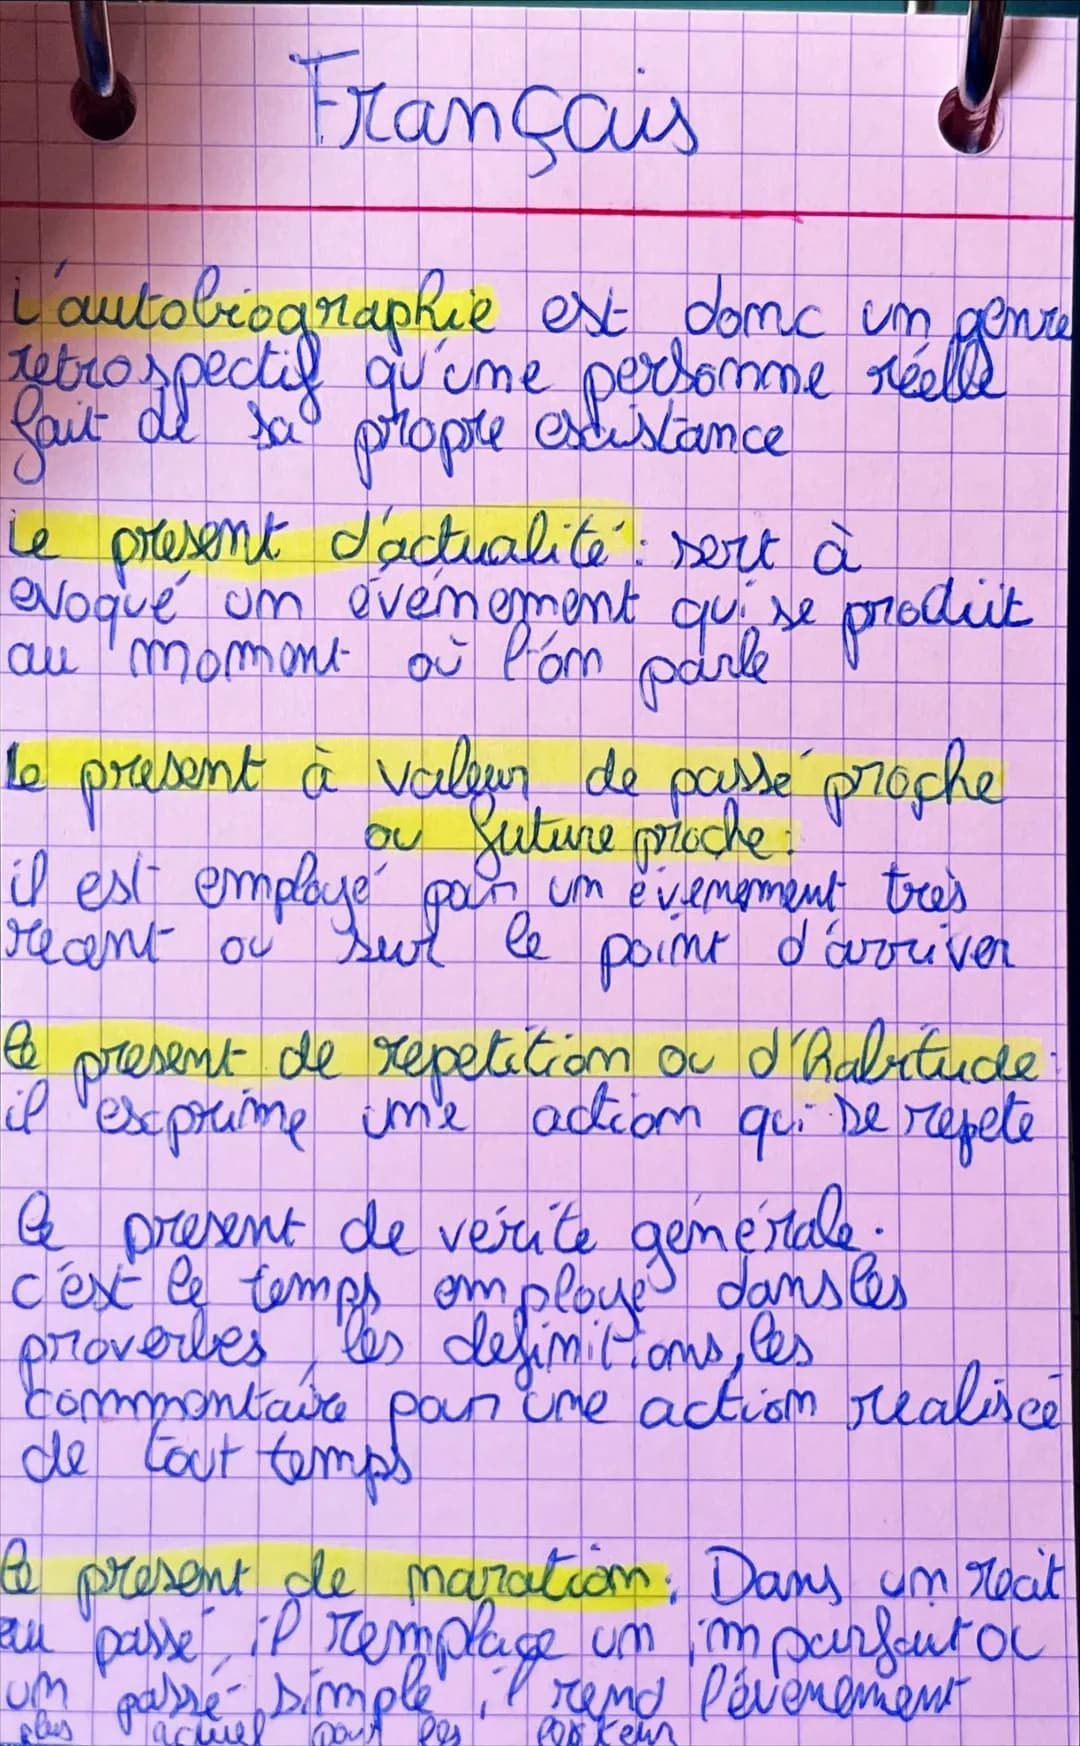 Français
L'autobiographie est donc un genre
retrospectif qu'une personne réelle
fait de sa propre existance
Le present d'actualité : sert à
evoqué un événement qui se produit
au moment où l'on parle
Le present à valeur de passé proche
ou future proche :
il est employé par un évenement très
recent ou sur le point d'arriver
Le present de repetition ou d'habitude :
il exprime une action qui se repete
Le present de vérité générale.
c'est le temps employé dans les
proverbes, les definitions, les
commentaire pour une action realiscé
de tout temps
Le present de naration : Dans un récit
au passé, il remplace un imparfait ou
un passé simple, il rend l'évenement
plus actuel pour les